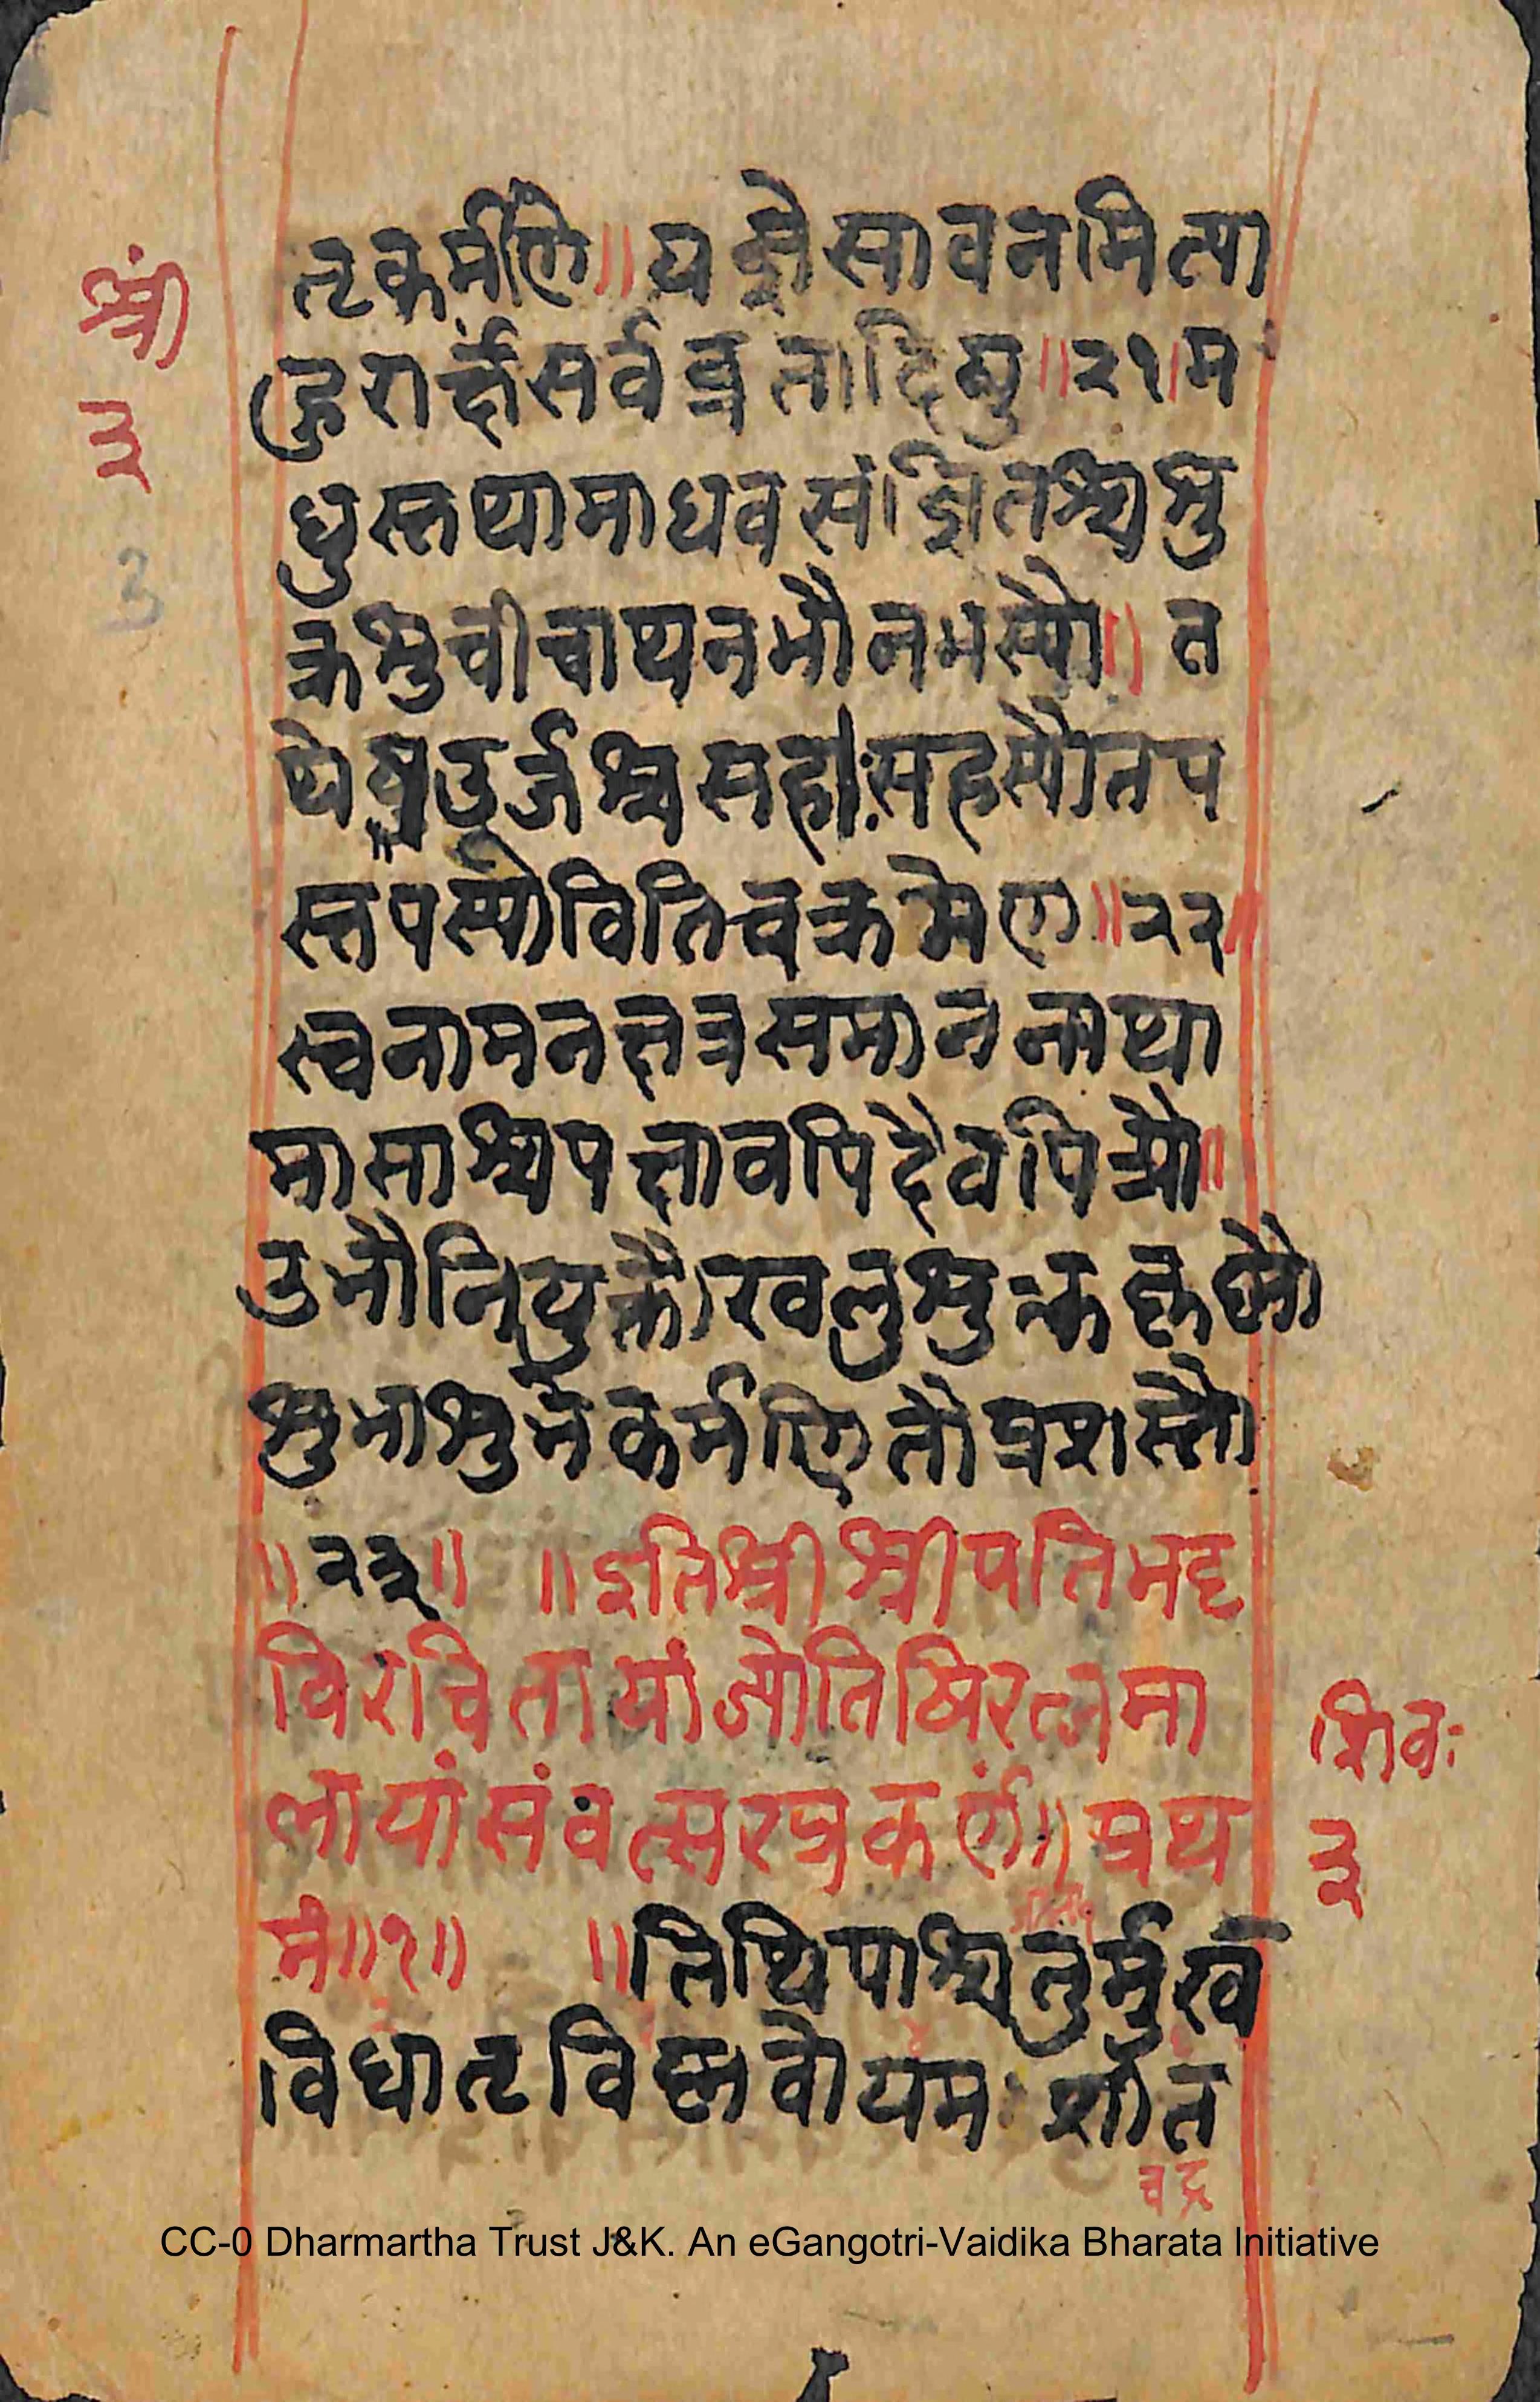 श्रीं
३
3
तृकर्मणि॥यज्ञेसावनमित्या
हुरार्क्षंसर्वव्रतादिषु॥२१।म
धुस्तथामाधवसंज्ञितश्चशु
क्रशुचीचाथनभौनभस्यौ॥त
थेषउर्जश्चसहाःसहस्यौतप
स्तपस्योवितिचक्रमेण॥२२॥
स्वनामनक्षत्रसमाननाथा
मासाश्चपक्षावपिदैवपित्र्यौ॥
उभौनियुक्तौखलुशुक्लकृष्णौ
शुभाशुभेकर्मणितौप्रशस्तौ
॥२३॥ ॥इतिश्रीश्रीपतिभट्ट
विरचितायांज्योतिषिरत्नमा
लायांसंवत्सरप्रकर्णं॥प्रथ
मं॥१॥ ॥तिथिपाश्चतुर्मुख
विधातृविष्णवोयमः शीत
चद्र
शिवः
३
CC-0 Dharmartha Trust J&K. An eGangotri-Vaidika Bharata Initiative